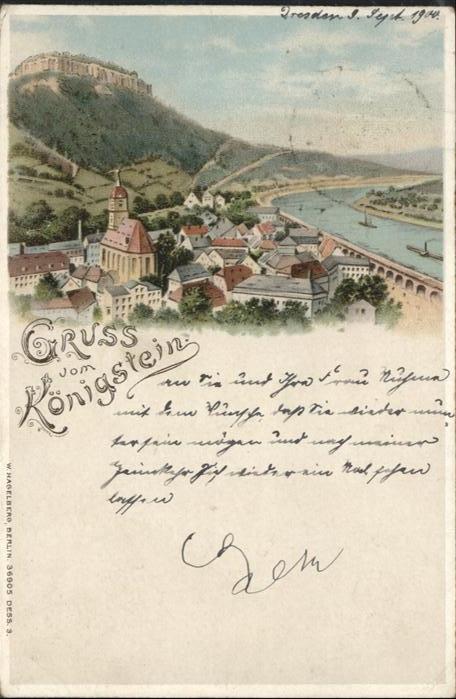 Dresden 9. Sept. 1900.
Gruss
vom
Königstein.
an Sie und Ihre Frau Muhme
mit dem Wunsche, daß Sie wieder mun
ter sein mögen und nach meiner
Heimkehr sich wieder ein Mal sehen
lassen
W. HAGELBERG, BERLIN. 36905 DESS. 3.